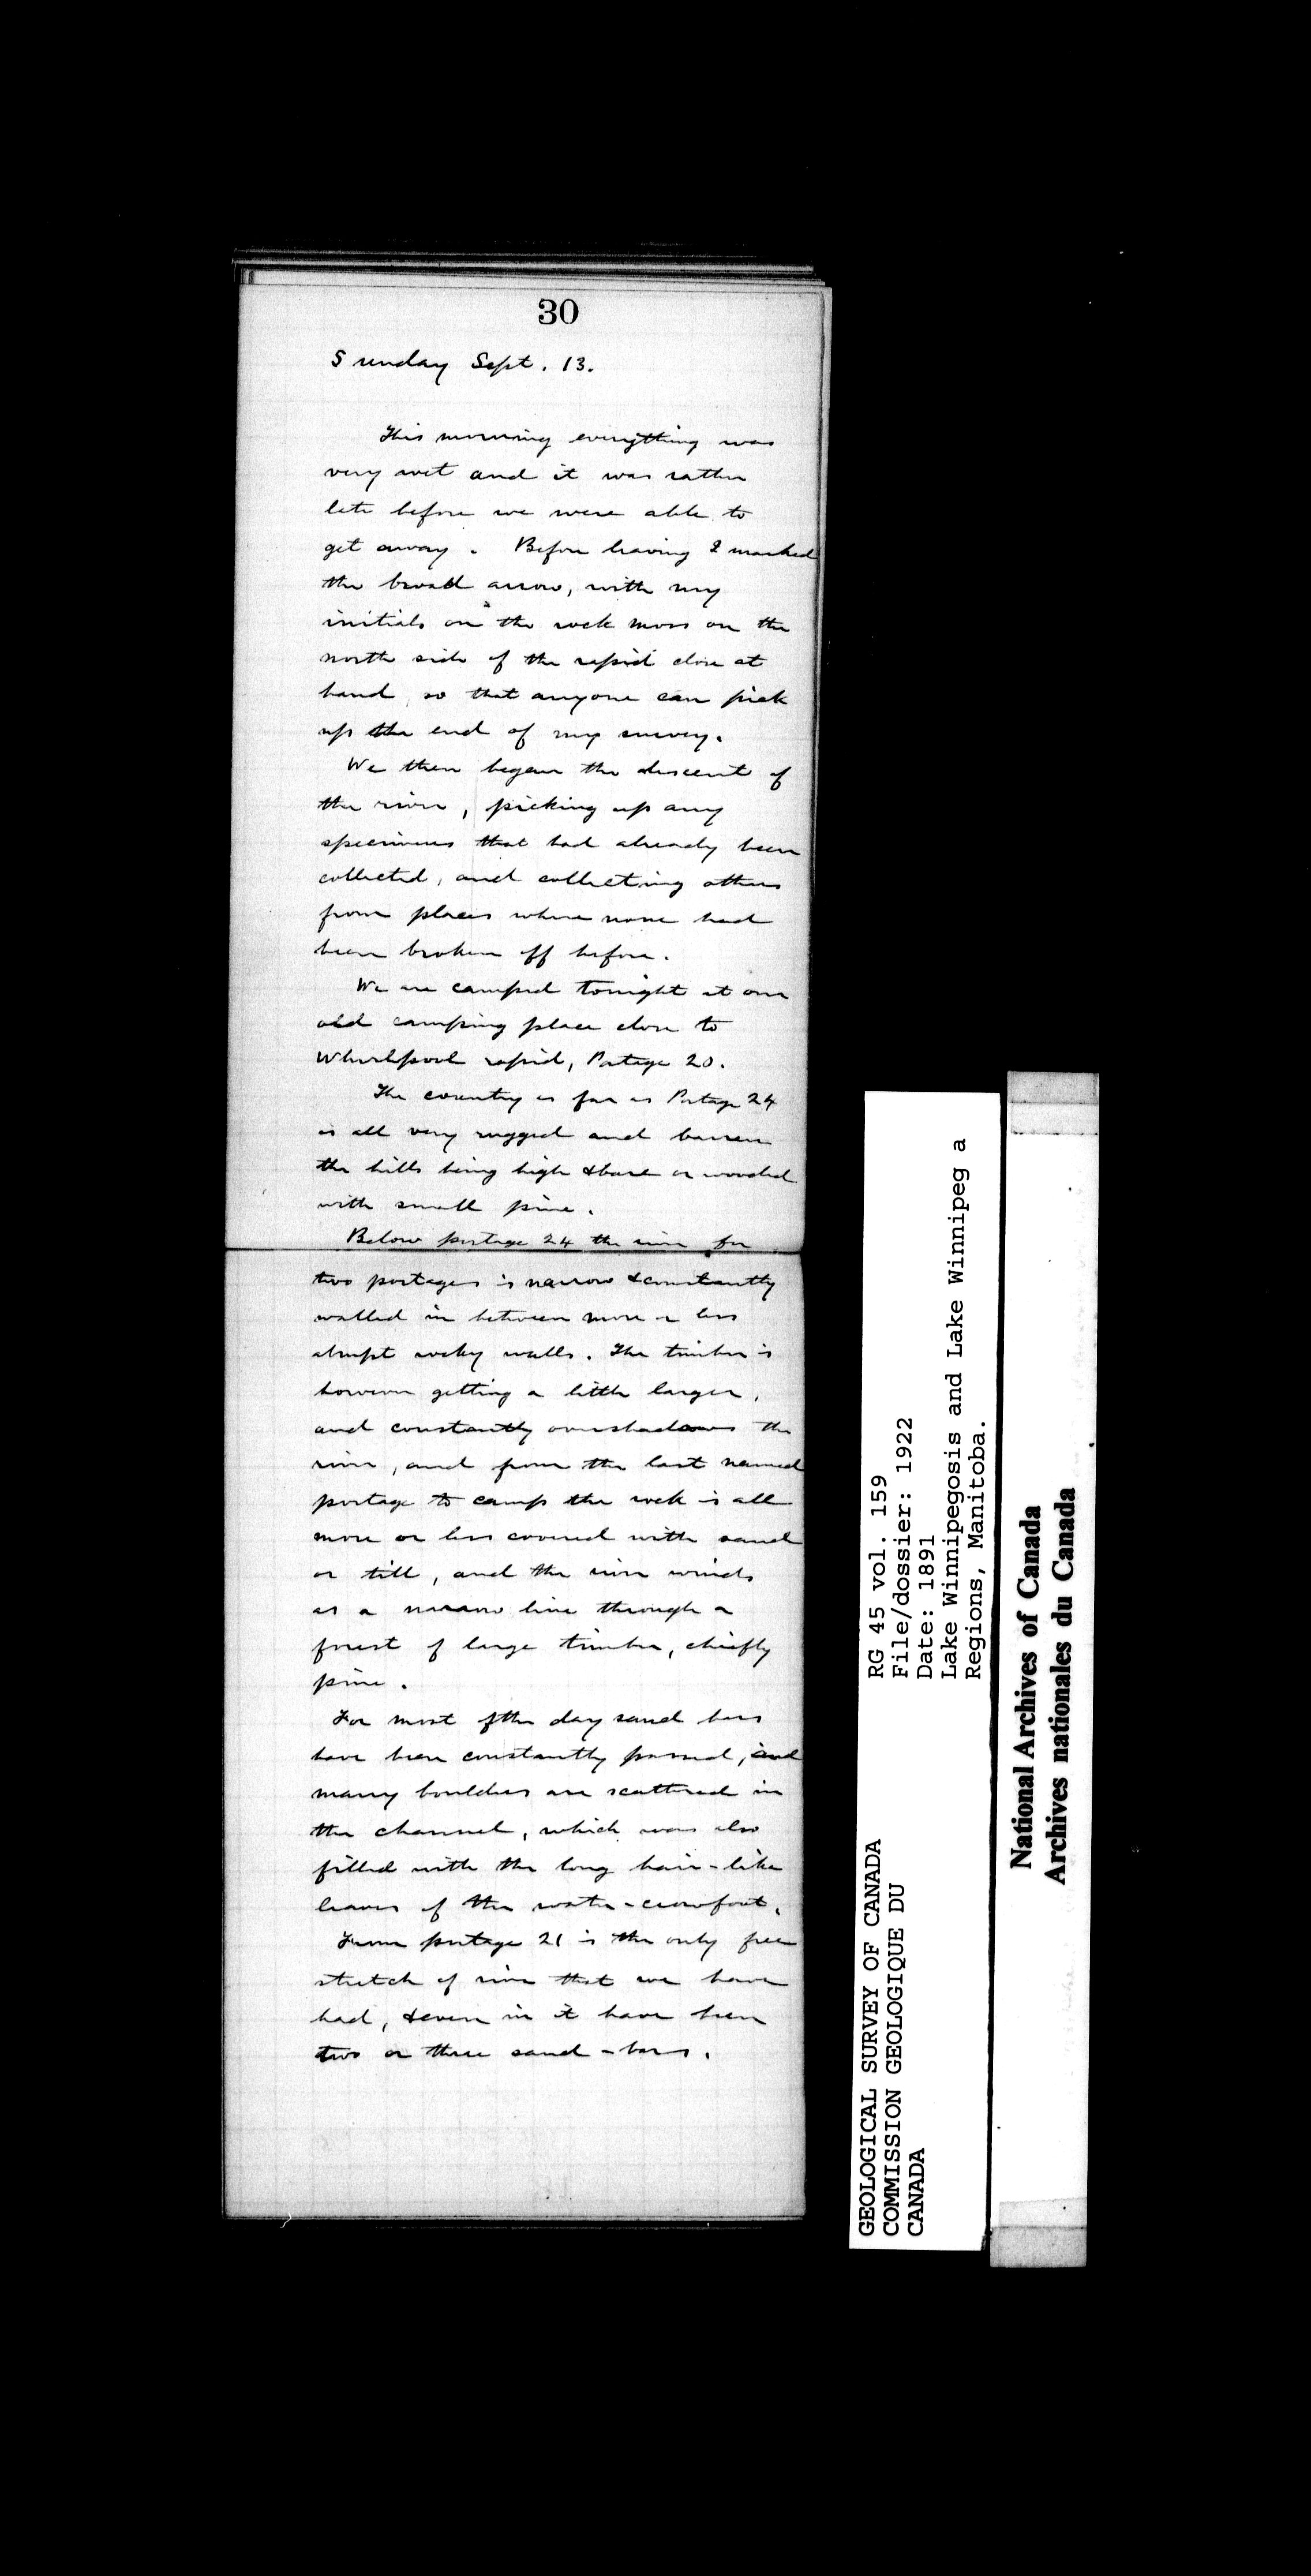 30
Sunday Sept. 13.
This morning everything was
very wet and it was rather
late before we were able to
get away. Before leaving I marked
the broad arrow, with my
initials on the rock moss on the
north side of the rapid close at
hand, so that anyone can pick
up the end of my survey.
We then began the descent of
the river, picking up any
specimens that had already been
collected, and collecting others
from places where none had
been broken off before.
We are camped tonight at our
old camping place close to
Whirlpool rapid, Portage 20.
The country as far as Portage 24
is all very rugged and barren
the hills being high & bare or wooded
with small pine.
Below portage 24 the river for
two portages is narrow & constantly
walled in between more or less
abrupt rocky walls. The timber is
however getting a little larger,
and constantly overshadows the
river, and from the last named
portage to camp the rock is all
more or less covered with sand
or till, and the river winds
as a narrow line through a
forest of large timber, chiefly
pine.
For most of the day sand bars
have been constantly passed, and
many boulders are scattered in
the channel, which was also
filled with the long hair-like
leaves of the water-crowfoot.
From portage 21 is the only free
stretch of river that we have
had, & even in it have been
two or three sand-bars.
GEOLOGICAL SURVEY OF CANADA
COMMISSION GEOLOGIQUE DU
CANADA
RG 45 vol. 159
File/dossier: 1922
Date: 1891
Lake Winnipegosis and Lake Winnipeg a
Regions, Manitoba.
National Archives of Canada
Archives nationales du Canada